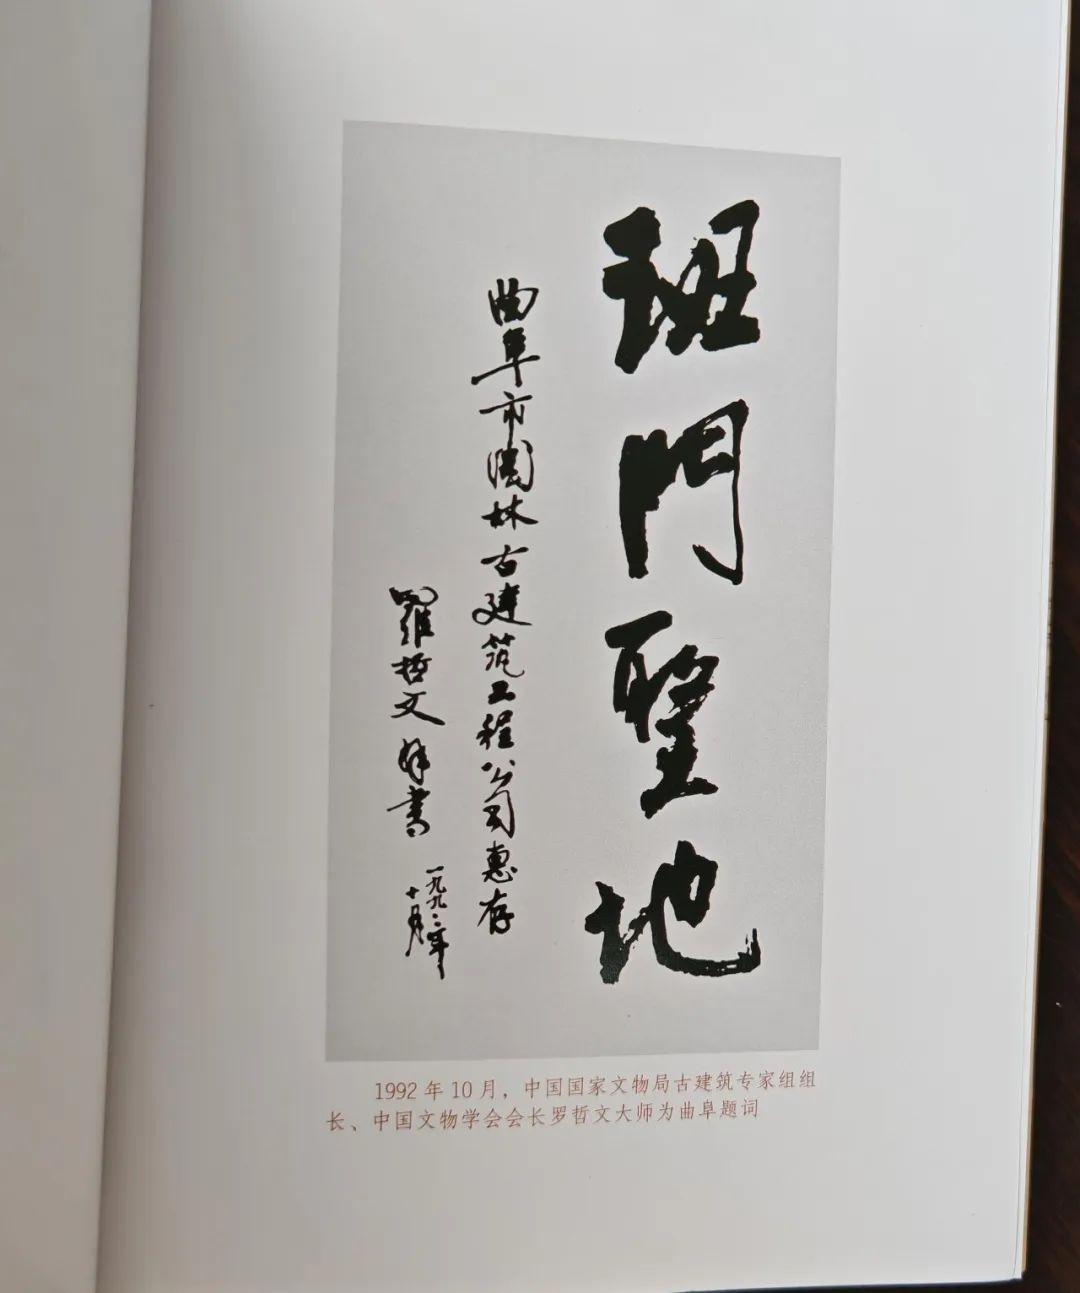 班門聖地
曲阜市園林古建筑工程公司惠存
羅哲文 拜書
一九九二年
十月
1992 年 10 月，中国国家文物局古建筑专家组组
长、中国文物学会会长罗哲文大师为曲阜题词